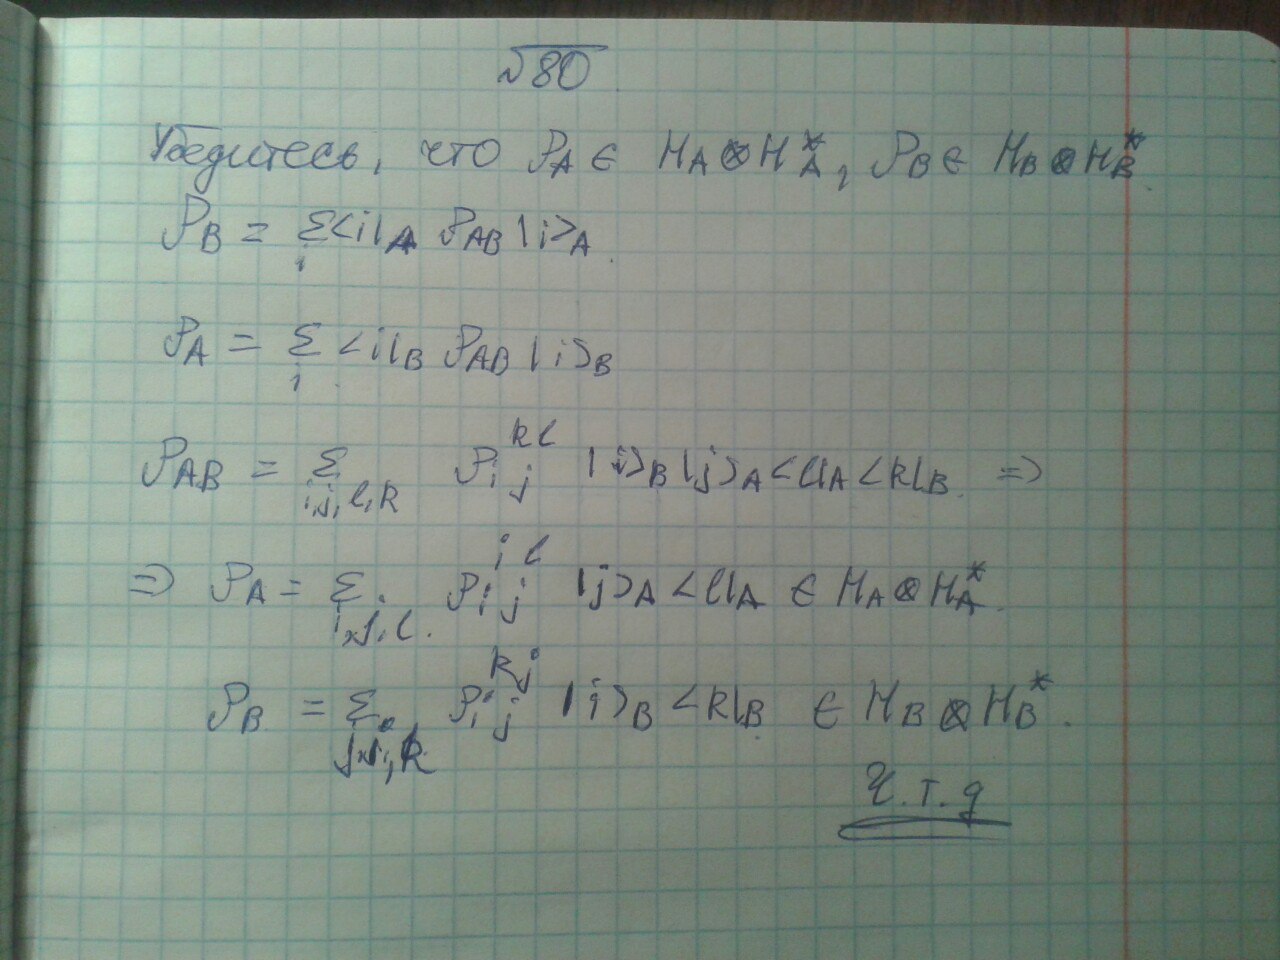 №80
Убедитесь, что ρ_A ∈ H_A ⊗ H_A^*, ρ_B ∈ H_B ⊗ H_B^*
ρ_B = Σ_i <i|_A ρ_AB |i>_A
ρ_A = Σ_i <i|_B ρ_AB |i>_B
ρ_AB = Σ_{i,j,l,k} ρ_{ij}^{kl} |i>_B |j>_A <l|_A <k|_B =>
=> ρ_A = Σ_{i,j,l} ρ_{ij}^{il} |j>_A <l|_A ∈ H_A ⊗ H_A^*
ρ_B = Σ_{j,i,k} ρ_{ij}^{kj} |i>_B <k|_B ∈ H_B ⊗ H_B^*.
Ч.т.д